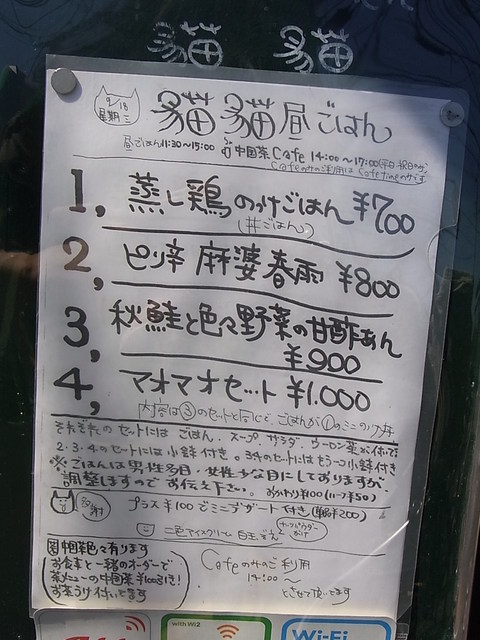 貓 貓
9/18
星期三
貓貓昼ごはん
昼ごはん11:30〜15:00 中国茶Cafe 14:00〜17:00
Cafeのみのご利用はCafetimeのみです
1, 蒸し鶏のっけごはん ¥700
(丼ごはん)
2, ピリ辛 麻婆春雨 ¥800
3, 秋鮭と色々野菜の甘酢あん
¥900
4, マオマオセット ¥1.000
内容は③のセットと同じで、ごはんが①のミニのっけ丼
それぞれのセットには ごはん、スープ、サラダ、ウーロン茶が付いて
2・3・4のセットには小鉢付き。34のセットにはもう一つ小鉢付き
※ごはんは男性多目・女性少な目にしておりますが、
調整しますのでお伝え下さい。 おかわり¥100 (ハーフ¥50)
多謝
プラス¥100でミニデザート付き(単品¥200)
二色アイスクリーム 白玉
中国茶色々有ります
お食事と一緒のオーダーで
茶メニューの中国茶¥100引き!
お茶うけ付いてます
Cafeのみのご利用
14:00〜
とさせて頂いてます
with Wi2
Wi-Fi